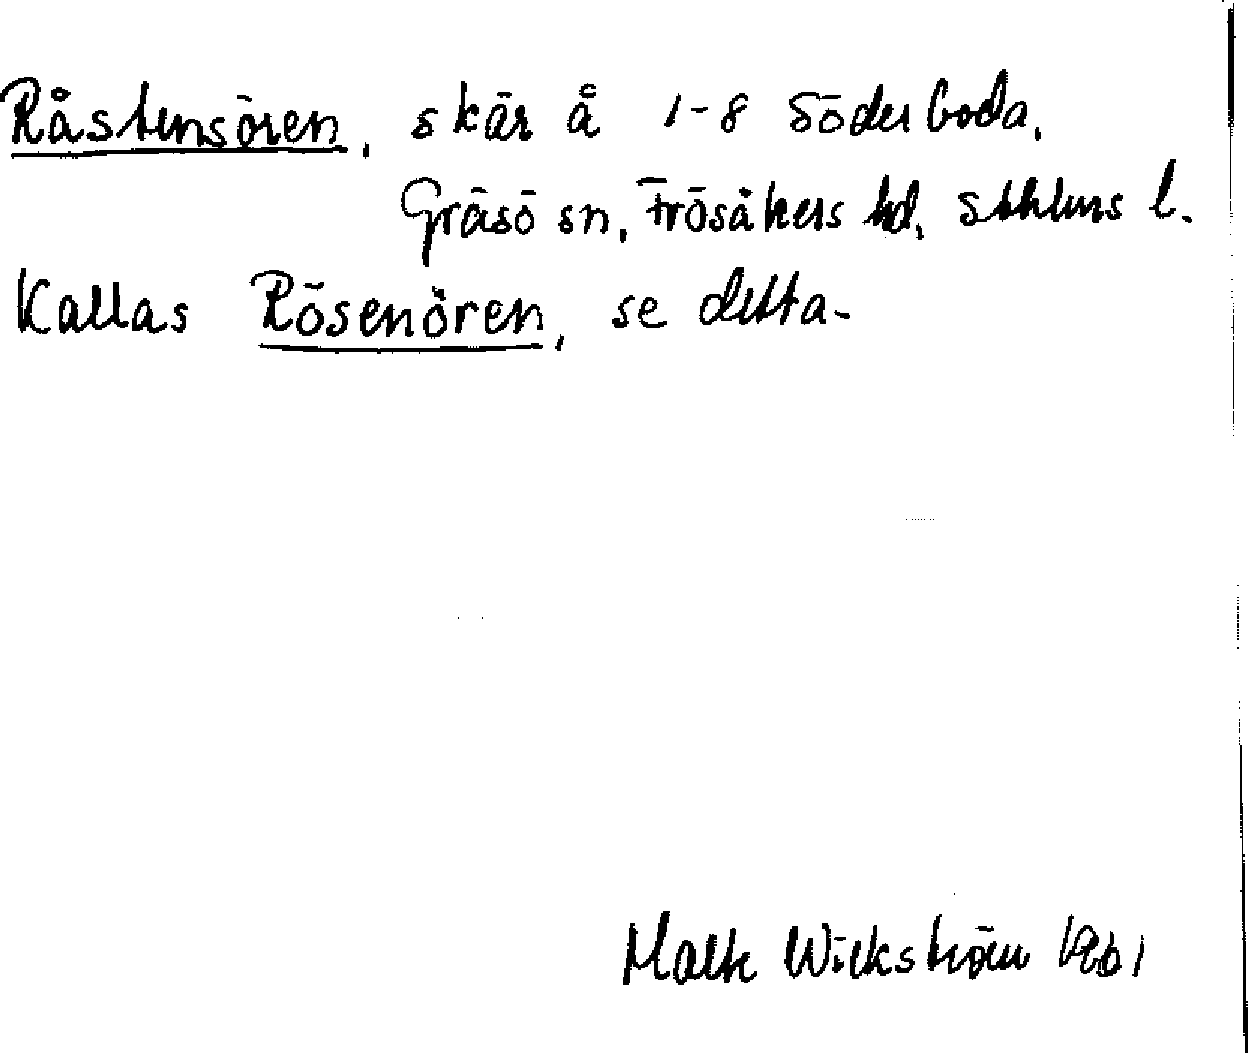 Råstensören, skär å 1-8 Söderboda,
Gräsö sn, Frösåkers hd, Sthlms l.
Kallas Rösenören, se detta.
Wickström 1961